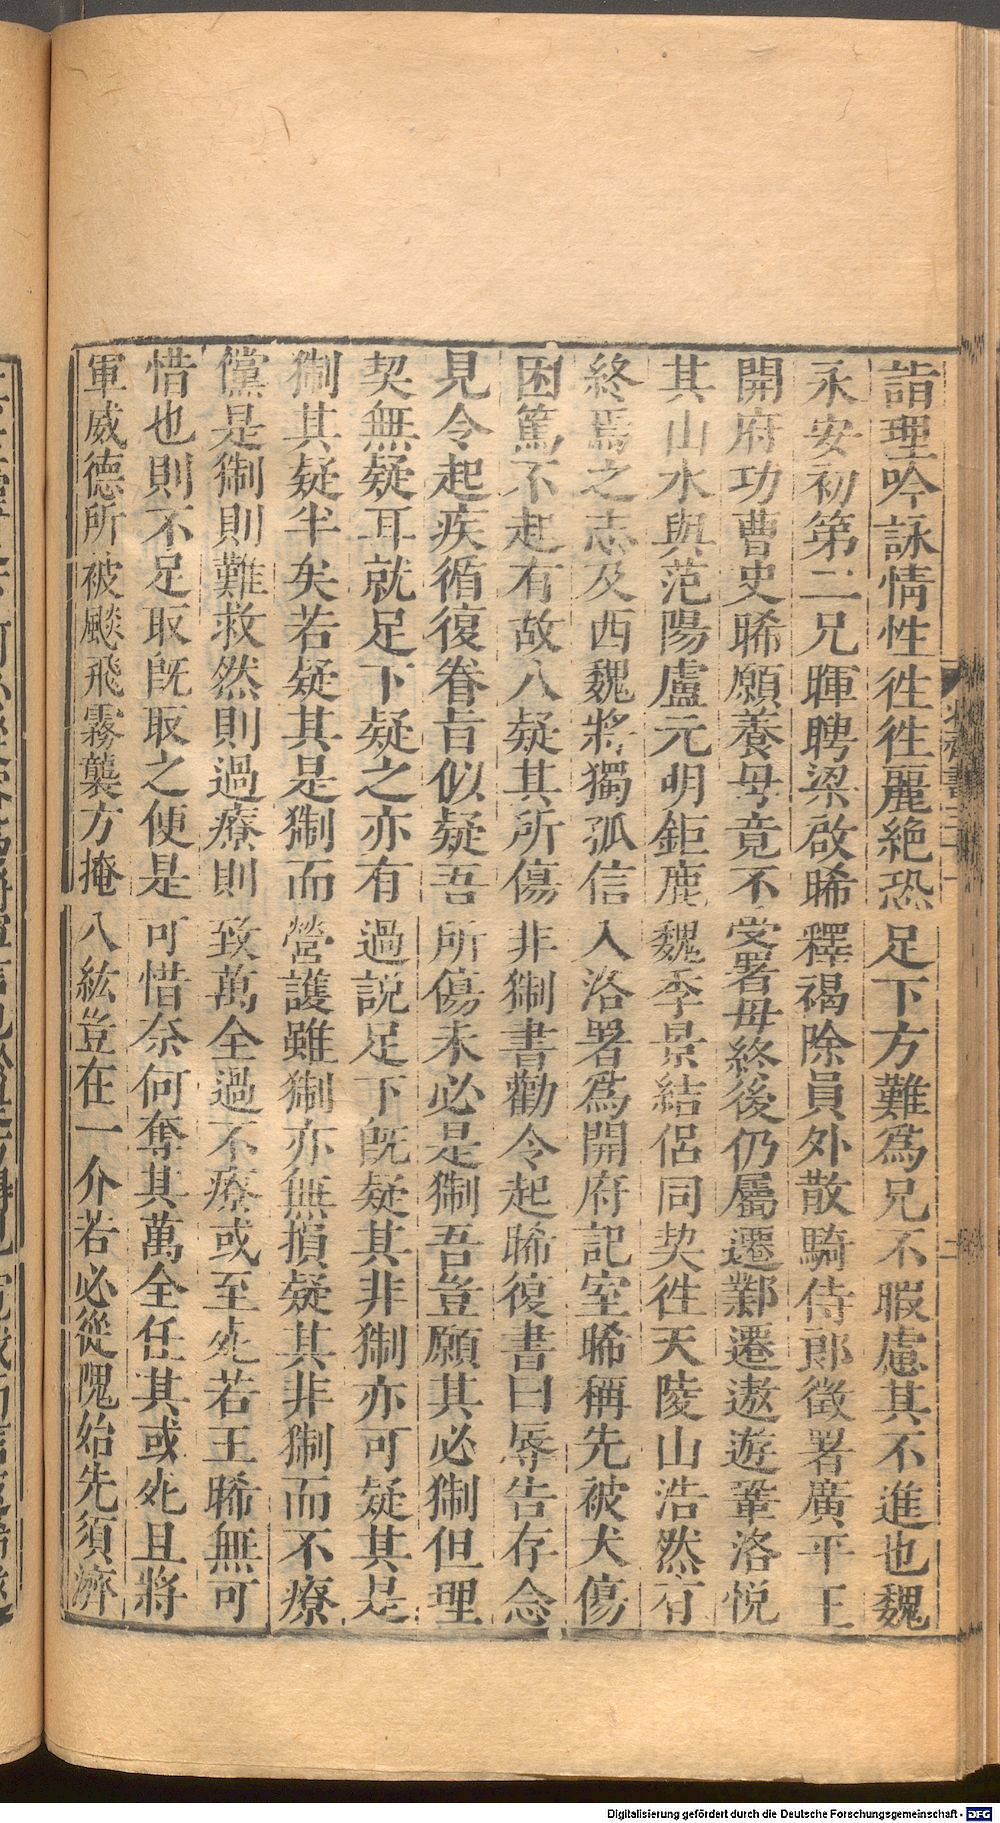 詣理吟詠情性徃徃麗絶恐足下方難爲兄不暇慮其不進也魏
永安初第二兄暉聘梁啟晞釋褐除員外散騎侍郎徵署廣平王
開府功曹史晞願養母竟不受署母終後仍屬遷鄴遷遨遊鞏洛悅
其山水與范陽盧元明鉅鹿魏季景結侶同契徃天陵山浩然有
終焉之志及西魏將獨孤信入洛署爲開府記室晞稱先被犬傷
困篤不起有故人疑其所傷非猘書勸令起晞復書曰辱告存念
見令起疾循復眷㫖似疑吾所傷未必是猘吾豈願其必猘但理
契無疑耳就足下疑之亦有過説足下旣疑其非猘亦可疑其是
猘其疑半矣若疑其是猘而營護雖猘亦無損疑其非猘而不療
儻是猘則難救然則過療則致萬全過不療或至死若王晞無可
惜也則不足取旣取之便是可惜奈何奪其萬全任其或死且將
軍威德所被颷飛霧襲方掩八紘豈在一介若必從隗始先須濟
Digitalisierung gefördert durch die Deutsche Forschungsgemeinschaft - DFG